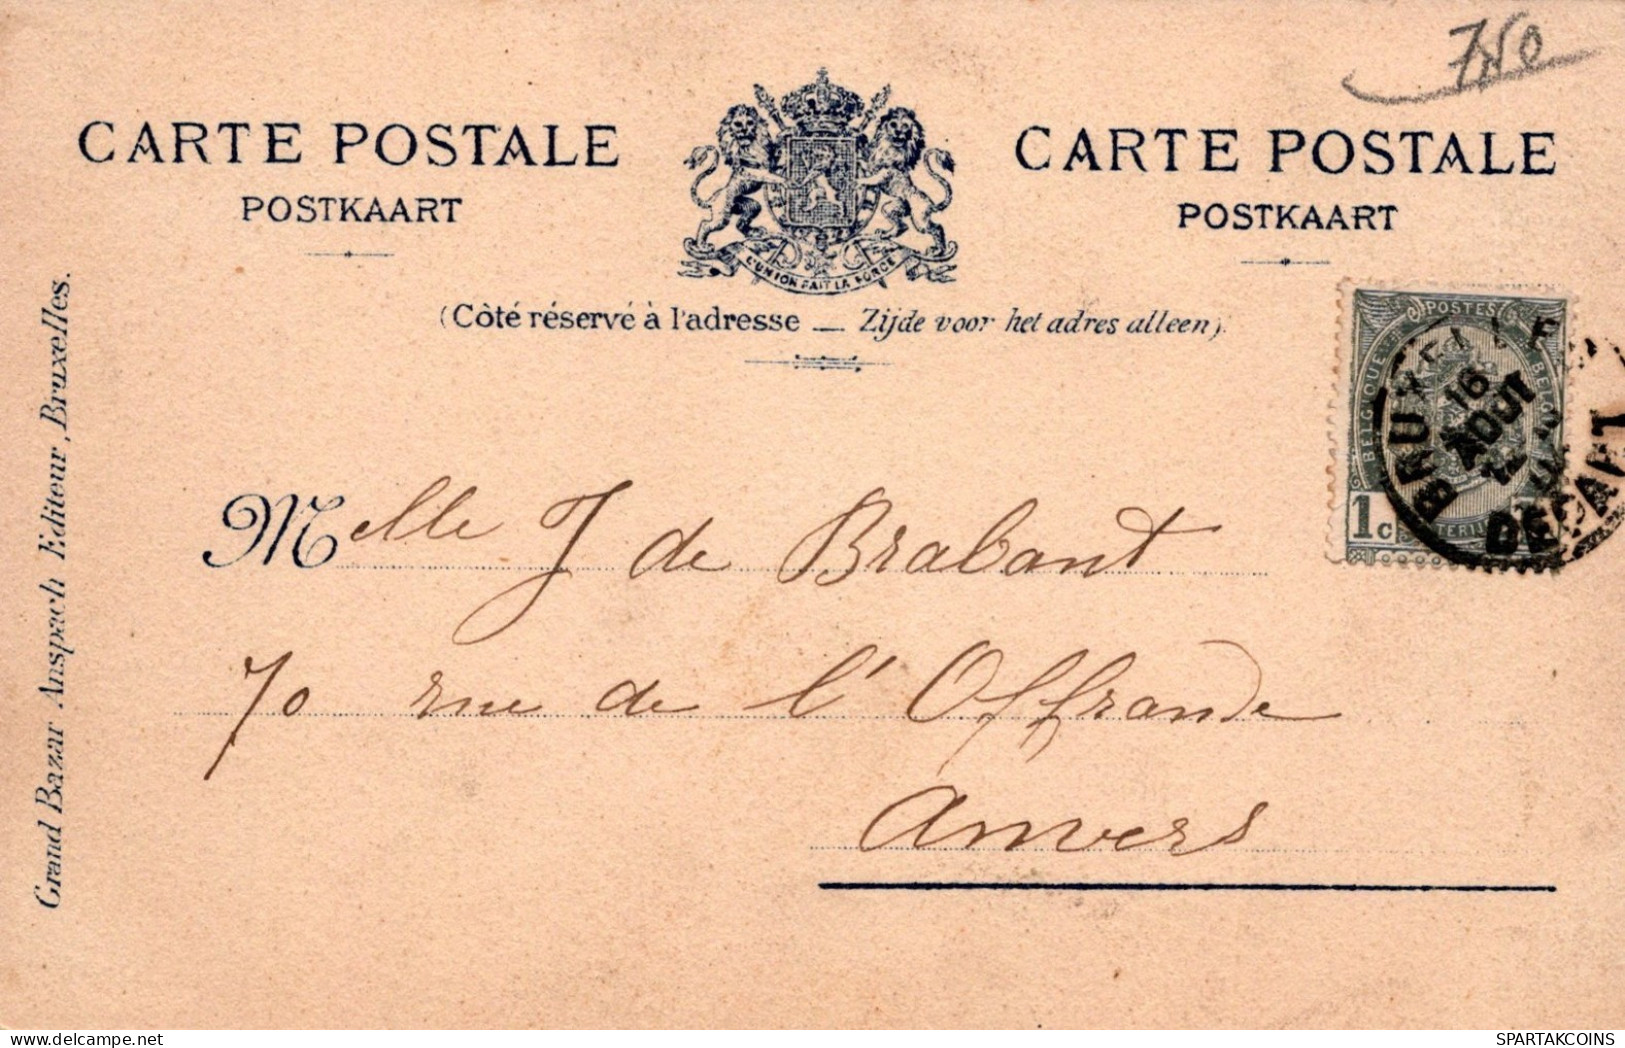 CARTE POSTALE
POSTKAART
CARTE POSTALE
POSTKAART
L'UNION FAIT LA FORCE
(Côté réservé à l'adresse — Zijde voor het adres alleen).
Grand Bazar Anspach Editeur, Bruxelles.
POSTES
BELGIQUE
1c
16
AOUT
DEPART
Melle J de Brabant
70 rue de l'Offrande
Anvers
SPARTAKCOINS